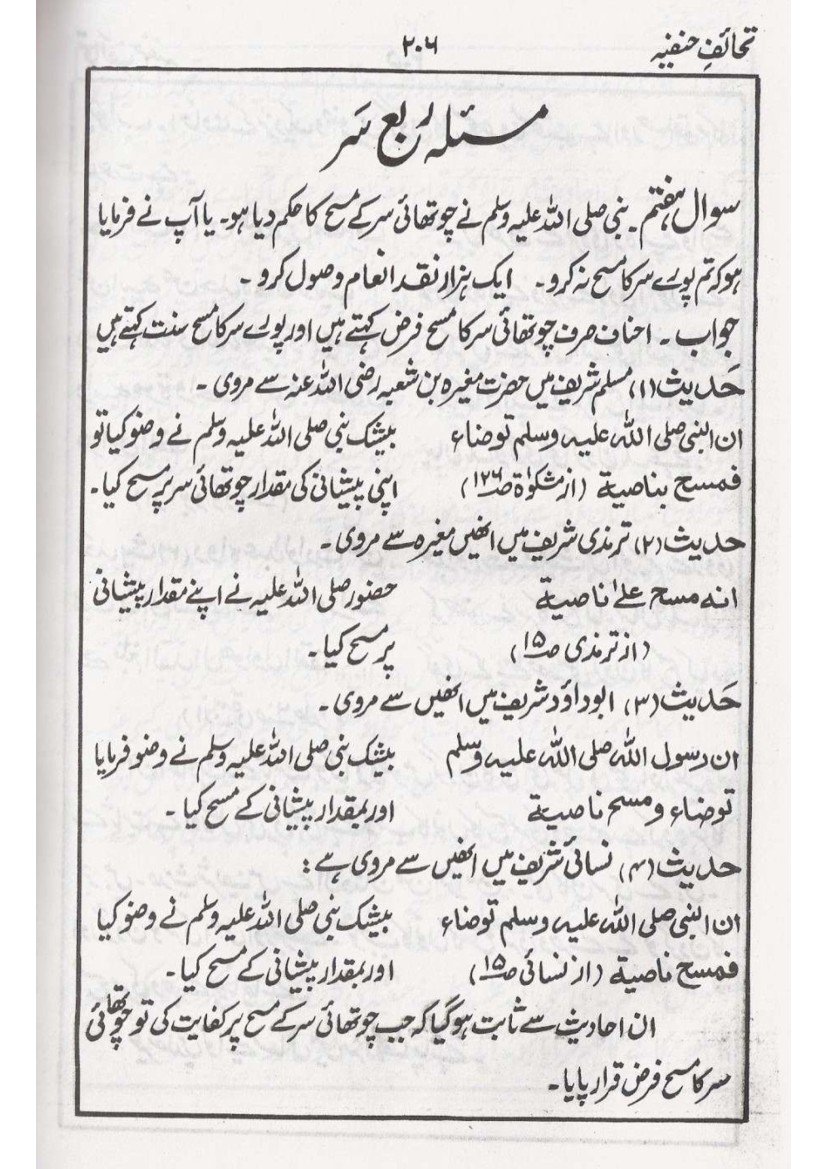 تحائفِ حنفیہ
۲۰۶
مسئلہ ربع سَر
سوال ہفتم ۔ نبی صلی اللہ علیہ وسلم نے چوتھائی سر کے مسح کا حکم دیا ہو۔ یا آپ نے فرمایا
ہو کہ تم پورے سر کا مسح نہ کرو۔ ایک ہزار نقد انعام وصول کرو ۔
جواب ۔ احناف صرف چوتھائی سر کا مسح فرض کہتے ہیں اور پورے سر کا مسح سنت کہتے ہیں
حَدیث (۱) مسلم شریف میں حضرت مغیرہ بن شعبہ رضی اللہ عنہ سے مروی ۔
ان النبی صلی اللہ علیہ وسلم توضاء بیشک نبی صلی اللہ علیہ وسلم نے وضو کیا تو
فمسح بناصیة (از مشکوٰة صـ۱۲۶) اپنی پیشانی کی مقدار چوتھائی سر پر مسح کیا۔
حدیث (۲) ترمذی شریف میں انھیں مغیرہ سے مروی ۔
انہ مسح علےٰ ناصیة حضور صلی اللہ علیہ نے اپنے مقدار پیشانی
(از ترمذی صـ۱۵) پر مسح کیا۔
حَدیث (۳) ابوداؤد شریف میں انھیں سے مروی ۔
ان رسول اللہ صلی اللہ علیہ وسلم بیشک نبی صلی اللہ علیہ وسلم نے وضو فرمایا
توضاء و مسح ناصیة اور بمقدار پیشانی کے مسح کیا ۔
حدیث (۴) نسائی شریف میں انھیں سے مروی ہے :
ان النبی صلی اللہ علیہ وسلم توضاء بیشک نبی صلی اللہ علیہ وسلم نے وضو کیا
فمسح ناصیة (از نسائی صـ۱۵) اور بمقدار پیشانی کے مسح کیا۔
ان احادیث سے ثابت ہو گیا کہ جب چوتھائی سر کے مسح پر کفایت کی تو چوتھائی
سر کا مسح فرض قرار پایا ۔